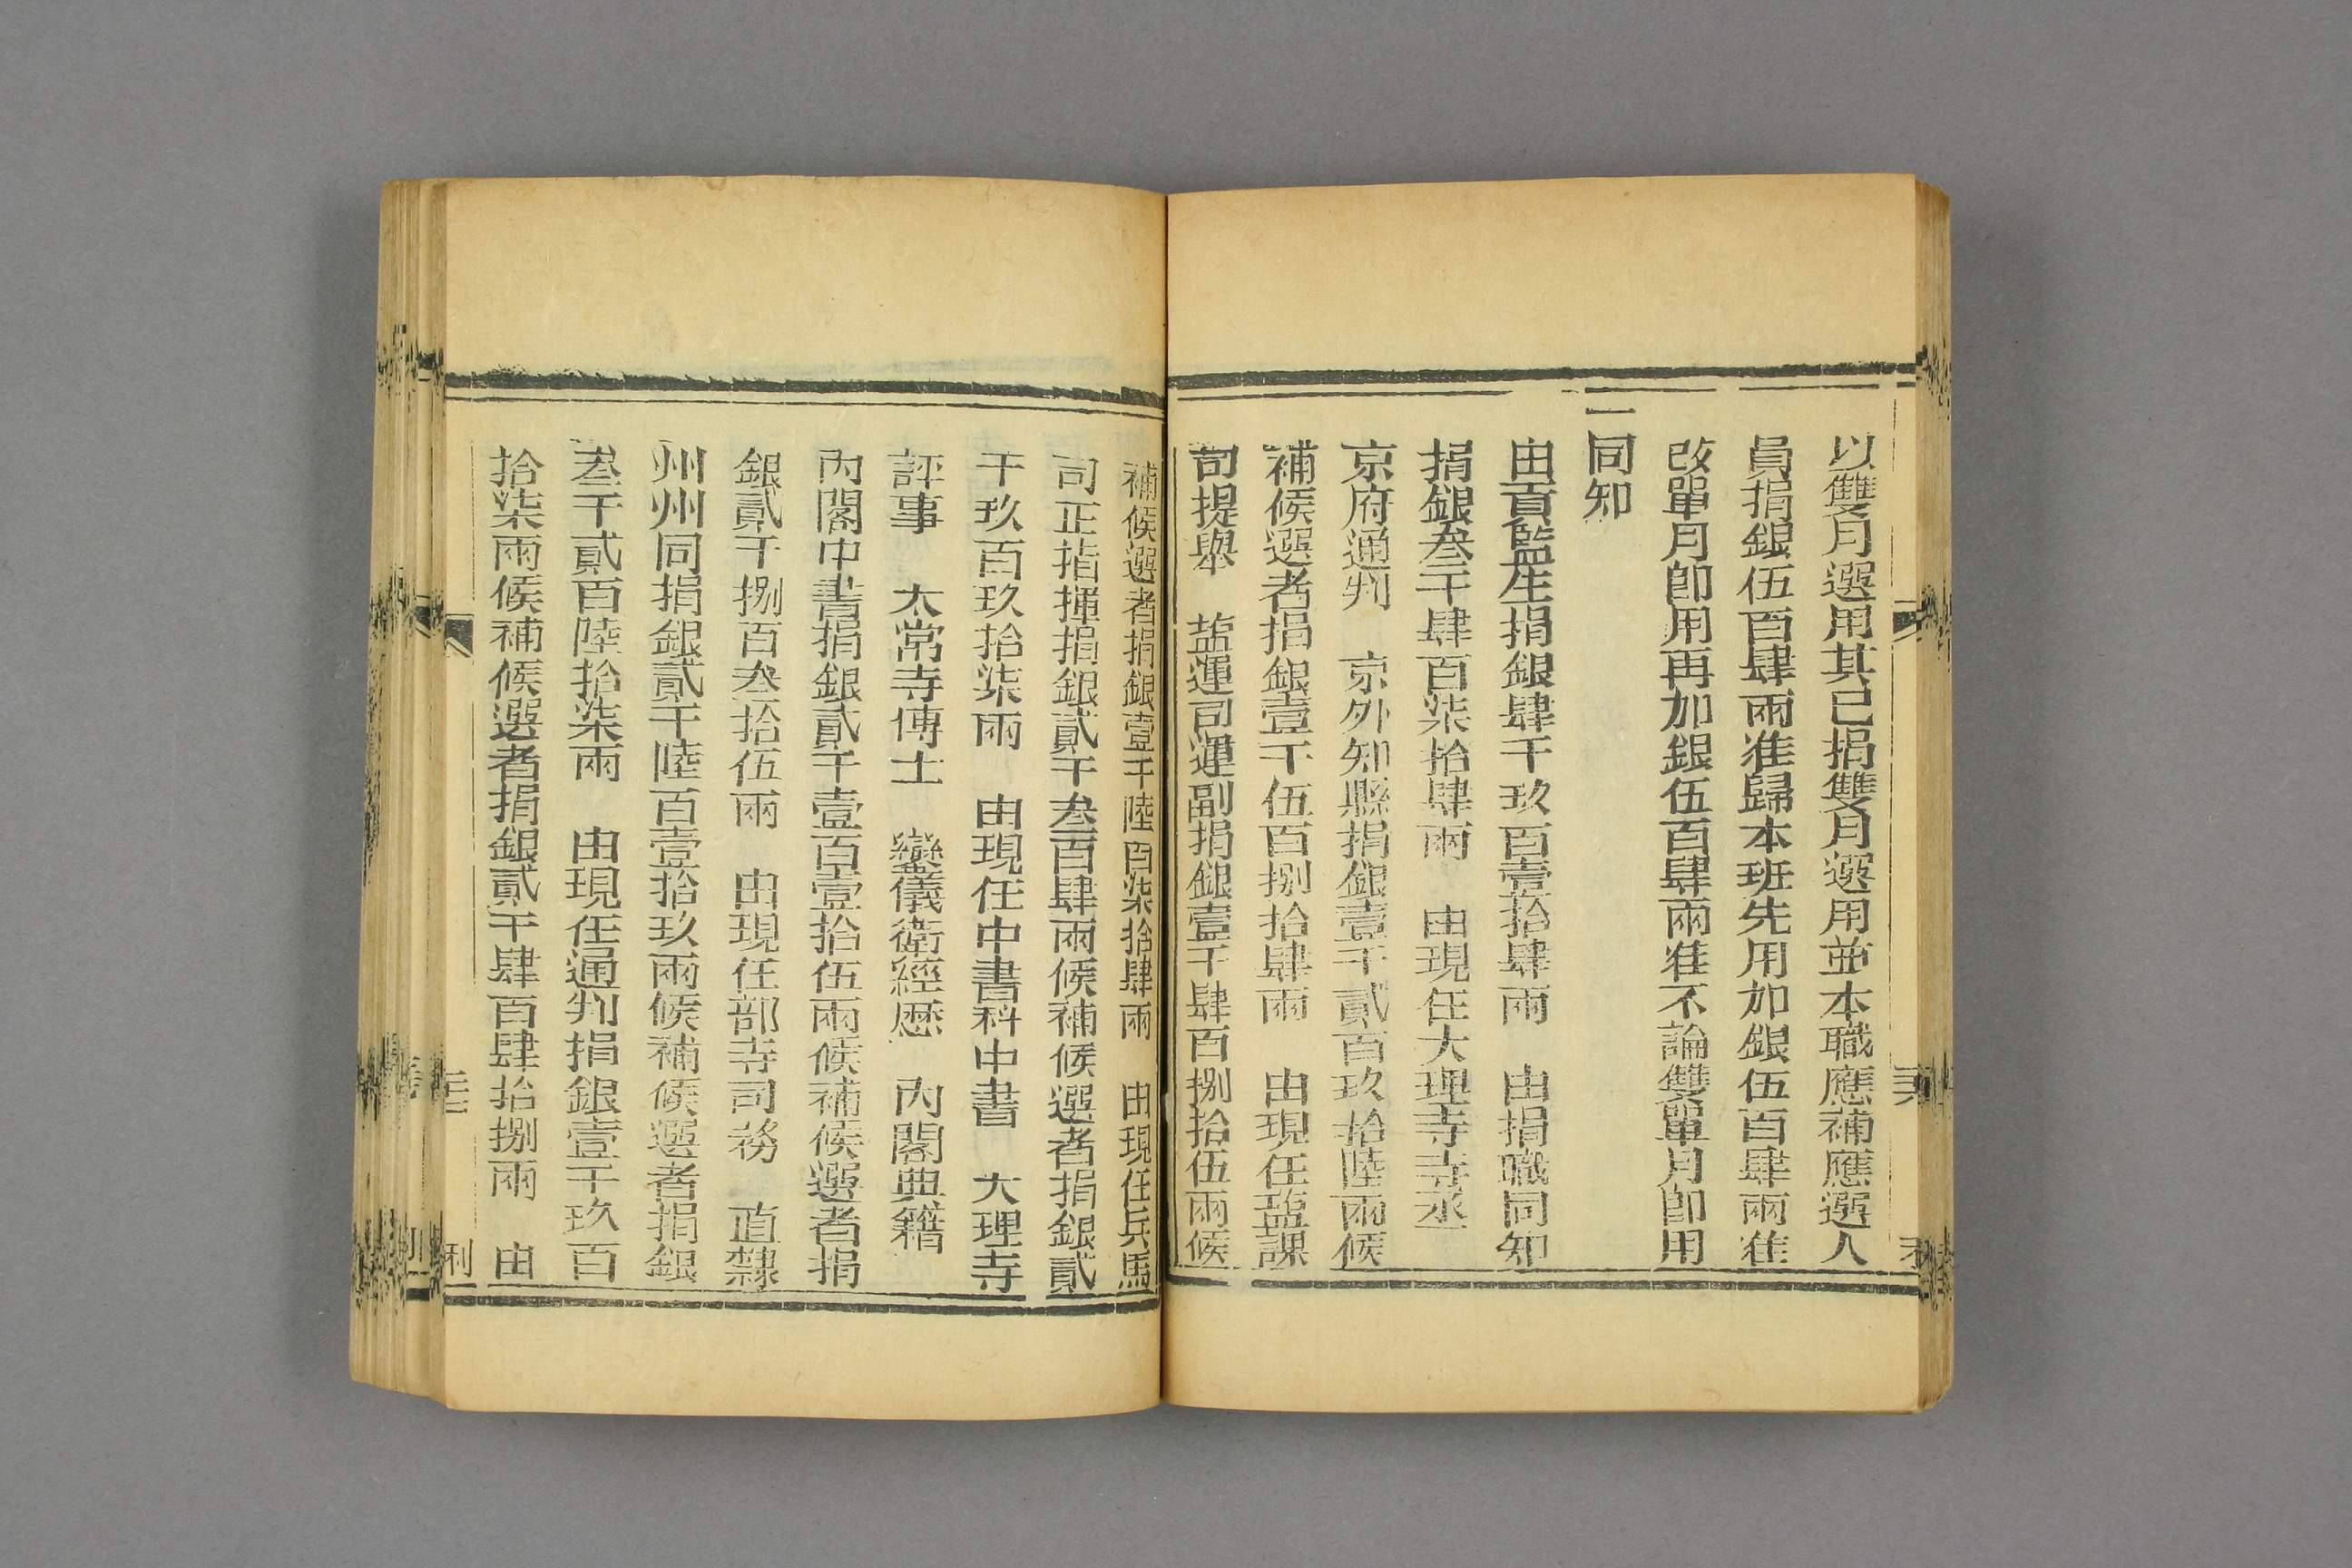 以雙月選用其已捐雙月選用並本職應補應選人
員捐銀伍百肆兩准歸本班先用加銀伍百肆兩准
改單月即用再加銀伍百肆兩准不論雙單月即用
一同知
由貢監生捐銀肆千玖百壹拾肆兩　由捐職同知
捐銀叁千肆百柒拾肆兩　由現任大理寺寺丞
京府通判　京外知縣捐銀壹千貳百玖拾陸兩候
補候選者捐銀壹千伍百捌拾肆兩　由現任鹽課
司提舉　鹽運司運副捐銀壹千肆百捌拾伍兩候
補候選者捐銀壹千陸百柒拾肆兩　由現任兵馬
司正指揮捐銀貳千叁百肆兩候補候選者捐銀貳
千玖百玖拾柒兩　由現任中書科中書　大理寺
評事　太常寺博士　鑾儀衛經歷　內閣典籍
內閣中書捐銀貳千壹百壹拾伍兩候補候選者捐
銀貳千捌百叁拾伍兩　由現任部寺司務　直隸
州州同捐銀貳千陸百壹拾玖兩候補候選者捐銀
叁千貳百陸拾柒兩　由現任通判捐銀壹千玖百
拾柒兩候補候選者捐銀貳千肆百肆拾捌兩　由
利